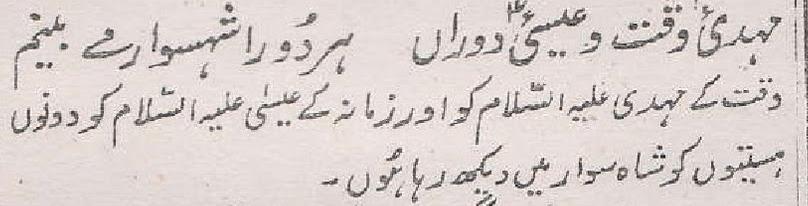 مہدیٔ وقت و عیسیٰؑ دوراں ہر دُو را شہسوار مے بینم
وقت کے مہدی علیہ السّلام کو اور زمانہ کے عیسٰی علیہ السّلام کو دونوں
ہستیوں کو شاہ سوار میں دیکھ رہا ہُوں۔